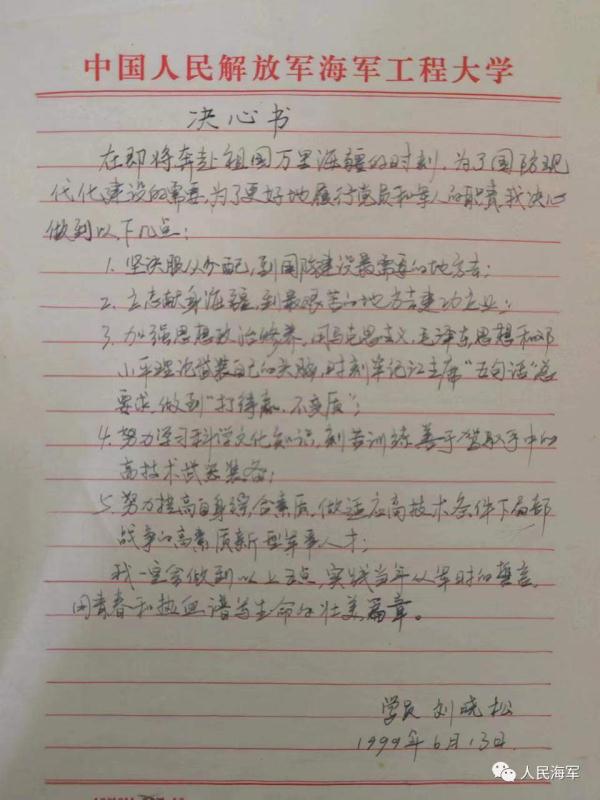 中国人民解放军海军工程大学
决心书
在即将奔赴祖国万里海疆的时刻，为了国防现
代化建设的需要，为了更好地履行党员和军人的职责，我决心
做到以下几点：
1. 坚决服从分配，到国防建设最需要的地方去；
2. 立志献身海疆，到最艰苦的地方去建功立业；
3. 加强思想政治修养，用马克思主义，毛泽东思想和邓
小平理论武装自己的头脑，时刻牢记江主席“五句话”总
要求，做到“打得赢，不变质”；
4. 努力学习科学文化知识，刻苦训练，善于驾驭手中的
高技术武器装备；
5. 努力提高自身综合素质，做适应高技术条件下局部
战争的高素质新型军事人才；
我一定会做到以上五点，实践当年从军时的誓言，
用青春和热血谱写生命的壮美篇章。
学员 刘晓松
1999年6月13日.
人民海军